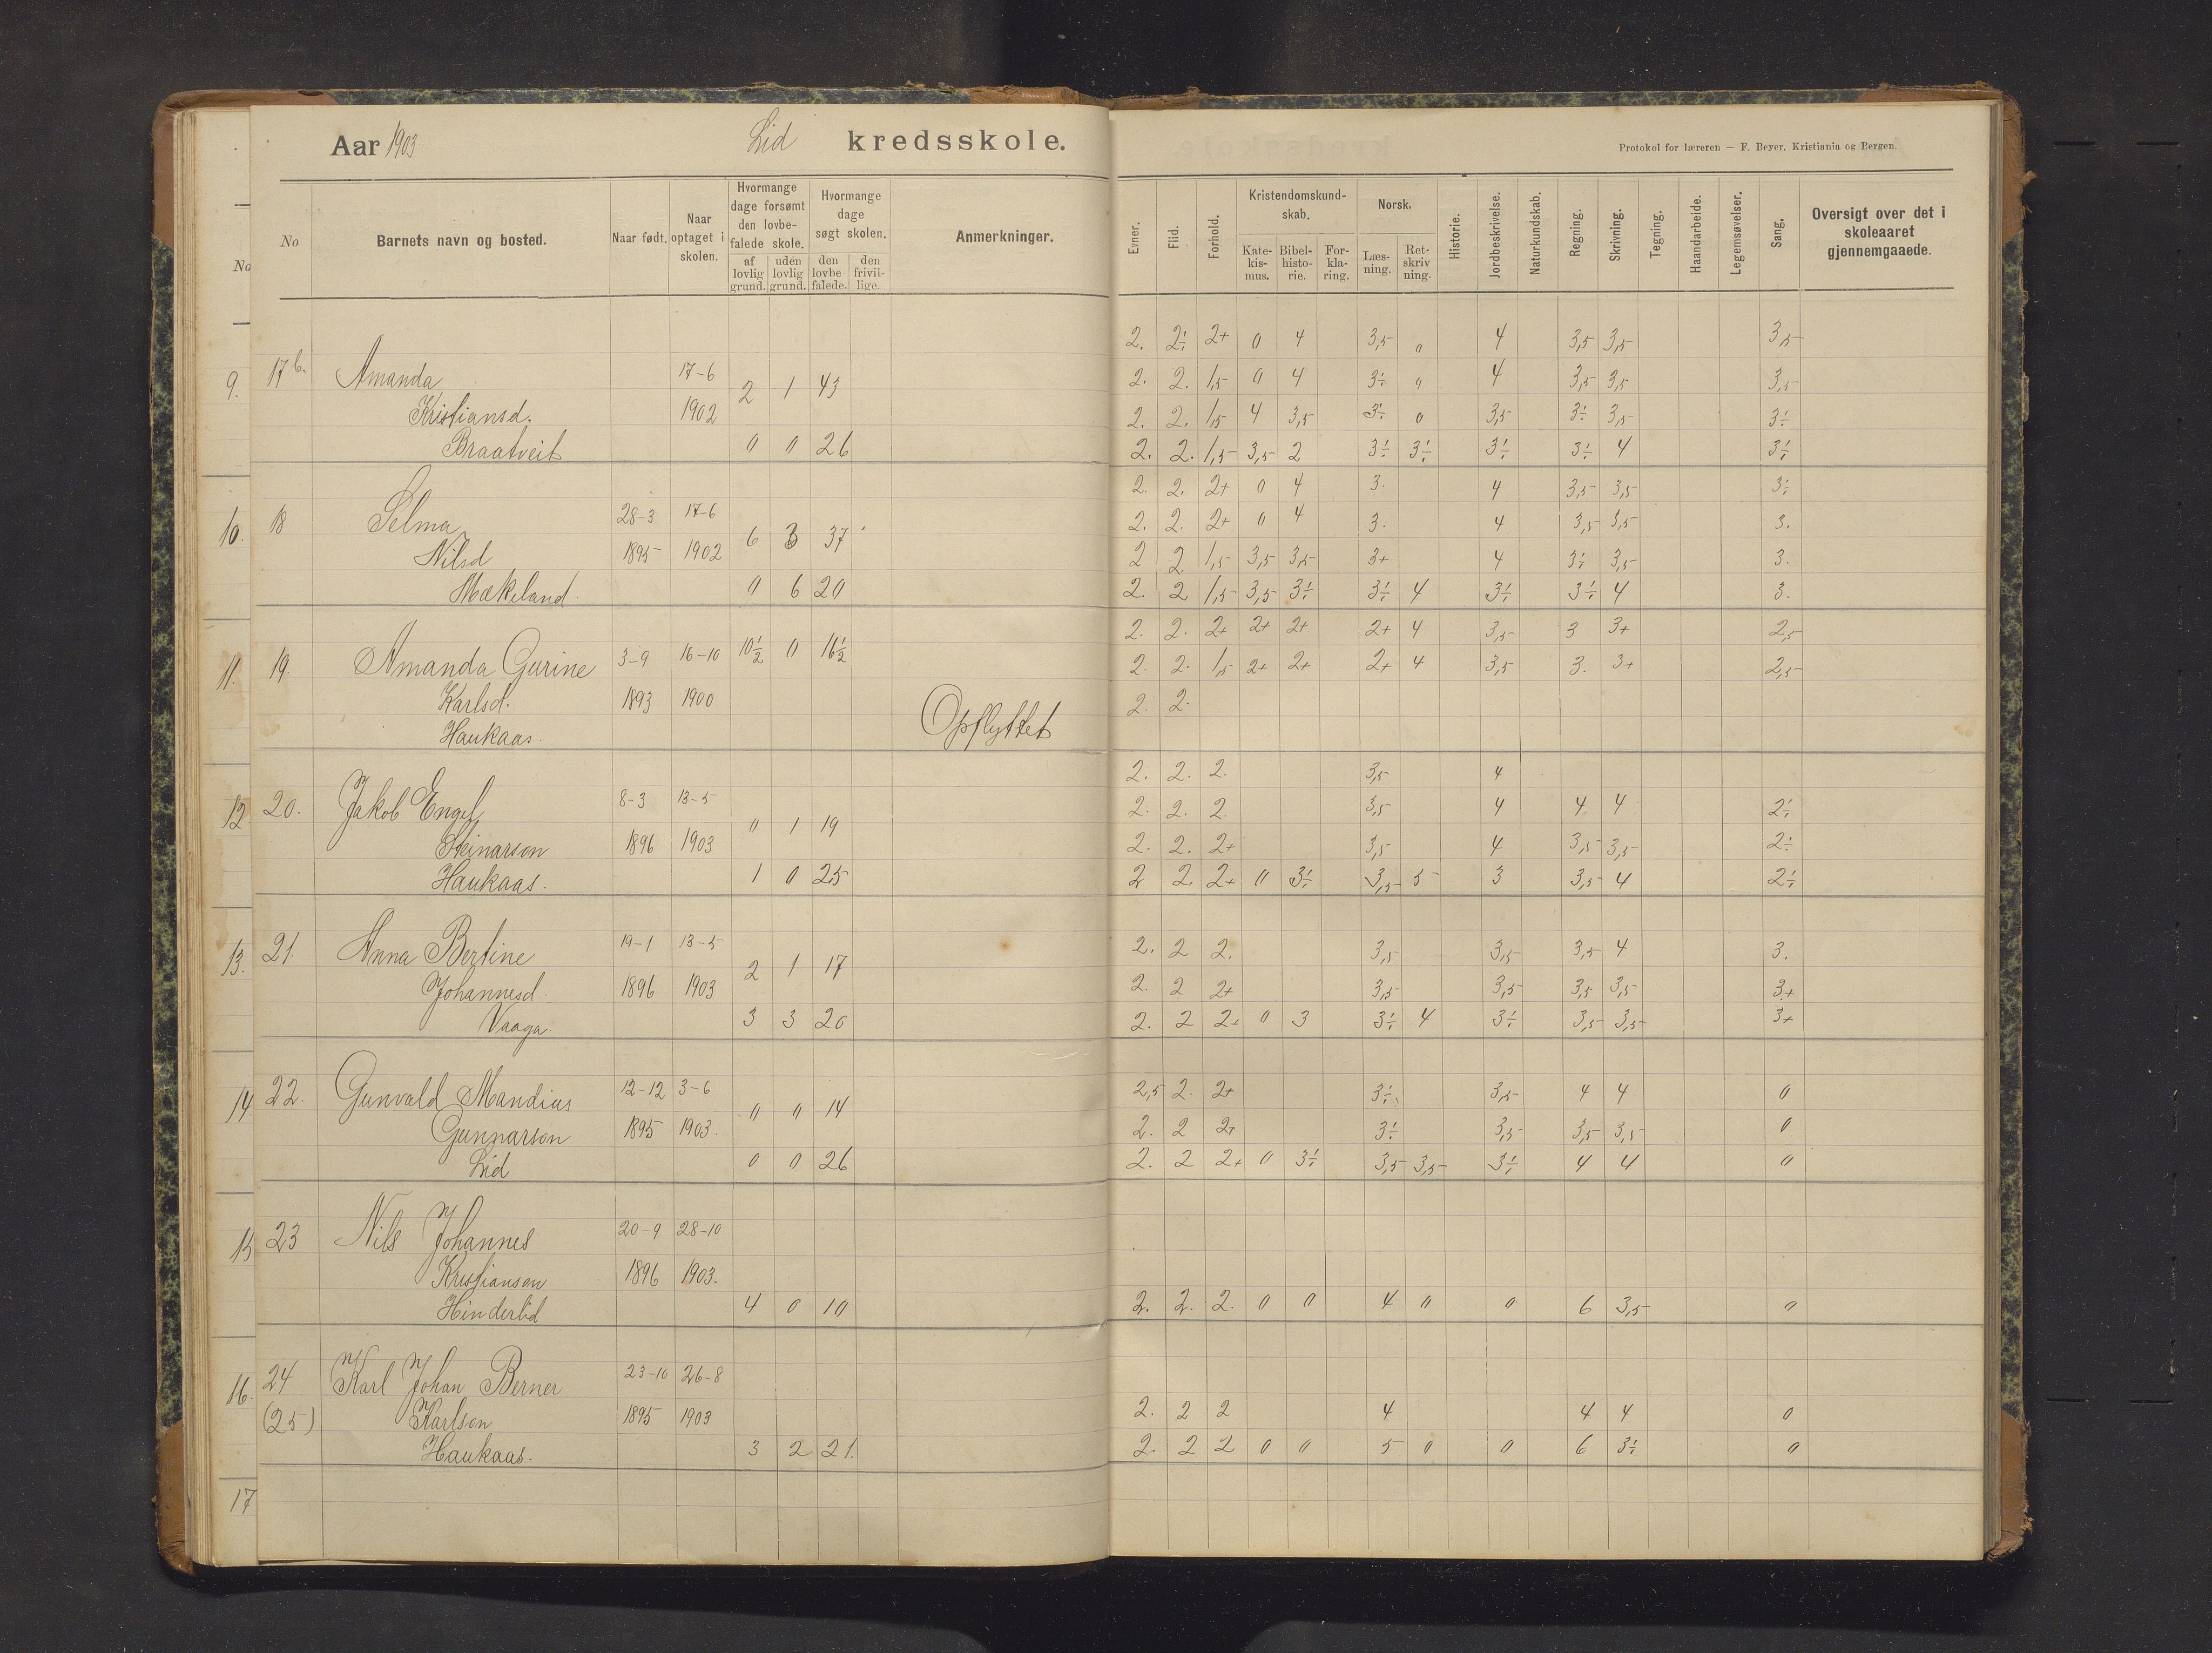 Aar 1903 Lid kredsskole.
Protokol for læreren — F. Beyer, Kristiania og Bergen.
No Barnets navn og bosted. Naar født. Naar optaget i skolen. Hvormange dage forsømt den lovbefalede skole. af lovlig grund. uden lovlig grund. Hvormange dage søgt skolen. den lovbefalede. den frivillige. Anmerkninger.
Evner. Flid. Forhold. Kristendomskundskab. Katekismus. Bibelhistorie. Forklaring. Norsk. Læsning. Retskrivning. Historie. Jordbeskrivelse. Naturkundskab. Regning. Skrivning. Tegning. Haandarbeide. Legemsøvelser. Sang. Oversigt over det i skoleaaret gjennemgaaede.
No
2. 2÷ 2+ 0 4 3,5 0 4 3,5 3,5 3,5
9. 17 b. Amanda 17-6 2 1 43 2. 2. 1,5 0 4 3÷ 0 4 3,5 3,5 3,5
Kristiansd. 1902 2. 2. 1,5 4 3,5 3÷ 0 3,5 3÷ 3,5 3÷
Braatveit 0 0 26 2. 2. 1,5 3,5 2 3÷ 3÷ 3÷ 3÷ 4 3÷
2. 2. 2+ 0 4 3. 4 3,5 3,5 3÷
10. 18 Selma 28-3 17-6 6 3 37 2. 2. 2+ 0 4 3. 4 3,5 3,5 3.
Nilsd 1895 1902 2 2 1,5 3,5 3,5 3+ 4 3÷ 3,5 3.
Mækeland. 0 6 20 2. 2 1,5 3,5 3÷ 3÷ 4 3÷ 3÷ 4 3.
2. 2. 2+ 2+ 2+ 2+ 4 3,5 3 3+ 2,5
11. 19. Amanda Gurine 3-9 16-10 10½ 0 16½ 2. 2. 1,5 2+ 2+ 2+ 4 3,5 3. 3+ 2,5
Karlsd. 1893 1900 Opflyttet 2. 2.
Haukaas.
2. 2. 2. 3,5 4
12 20. Jakob Engel 8-3 13-5 0 1 19 2. 2. 2. 3,5 4 4 4 2÷
Steinarson 1896 1903 2. 2. 2+ 3,5 4 3,5 3,5 2÷
Haukaas. 1 0 25 2 2. 2+ 0 3÷ 3,5 5 3 3,5 4 2÷
13. 21. Anna Bertine 19-1 13-5 2 1 17 2. 2 2. 3,5 3,5 3,5 4 3.
Johannesd. 1896 1903 2. 2 2+ 3,5 3,5 3,5 3,5 3+
Vaaga. 3 3 20 2. 2 2+ 0 3 3÷ 4 3÷ 3,5 3,5 3+
14. 22. Gunvald Mandius 12-12 3-6 0 0 14 2,5 2. 2+ 3÷ 3,5 4 4 0
Gunnarson 1895 1903. 2. 2 2+ 3÷ 3,5 3,5 3,5 0
Lid 0 0 26 2. 2 2+ 0 3÷ 3,5 3,5 3÷ 4 4 0
15 23 Nils Johannes 20-9 28-10
Kristiansen 1896 1903.
Hinderlid 4 0 10 2. 2. 2. 0 0 4 0 0 6 3,5 0
16. 24 Karl Johan Berner 23-10 26-8
(25) Karlson 1895 1903 2. 2 2 4 4 4 0
Haukaas. 3 2 21. 2. 2 2 0 0 5 0 0 6 3÷ 0
17